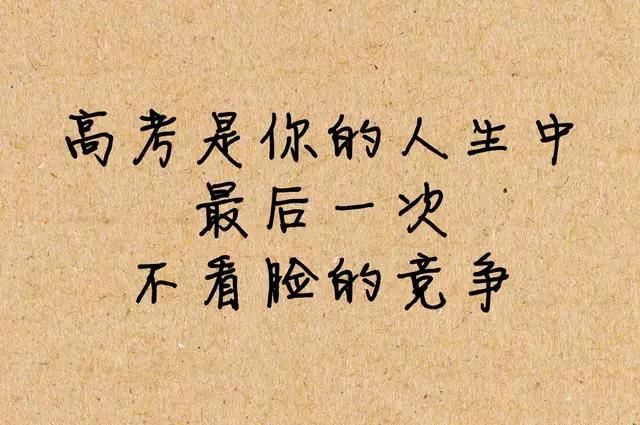 高考是你的人生中
最后一次
不看脸的竞争